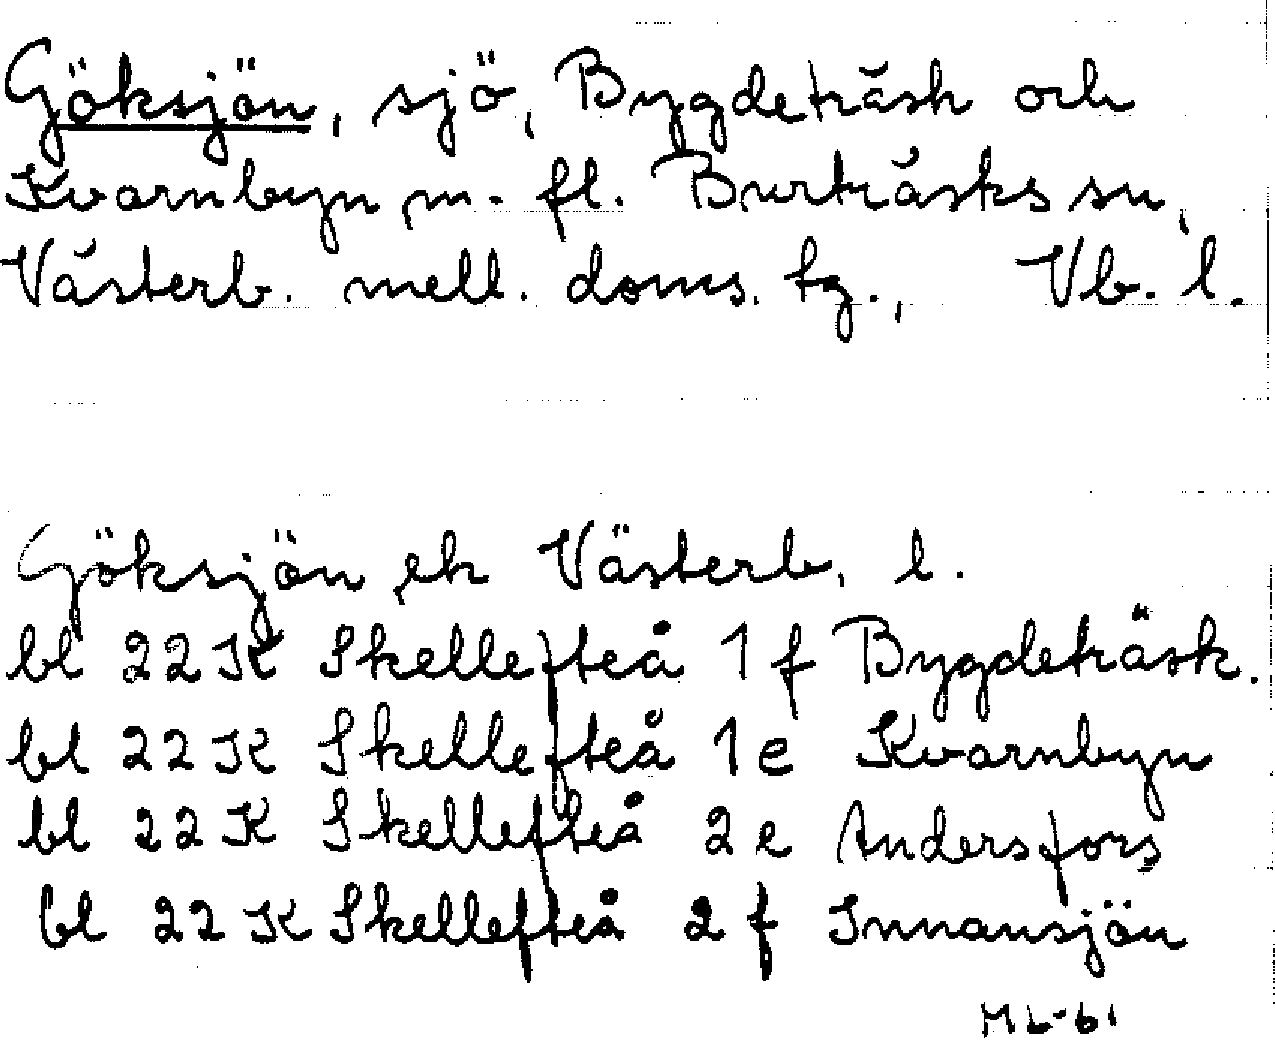 Göksjön, sjö, Bygdeträsk och
Kvarnbyn m. fl. Burträsks sn,
Västerb. mell. doms. tg., Vb. l.
Göksjön ek Västerb. l.
bl 22 K Skellefteå 1 f Bygdeträsk.
bl 22 K Skellefteå 1 e Kvarnbyn
bl 22 K Skellefteå 2 e Andersfors
bl 22 K Skellefteå 2 f Innansjön